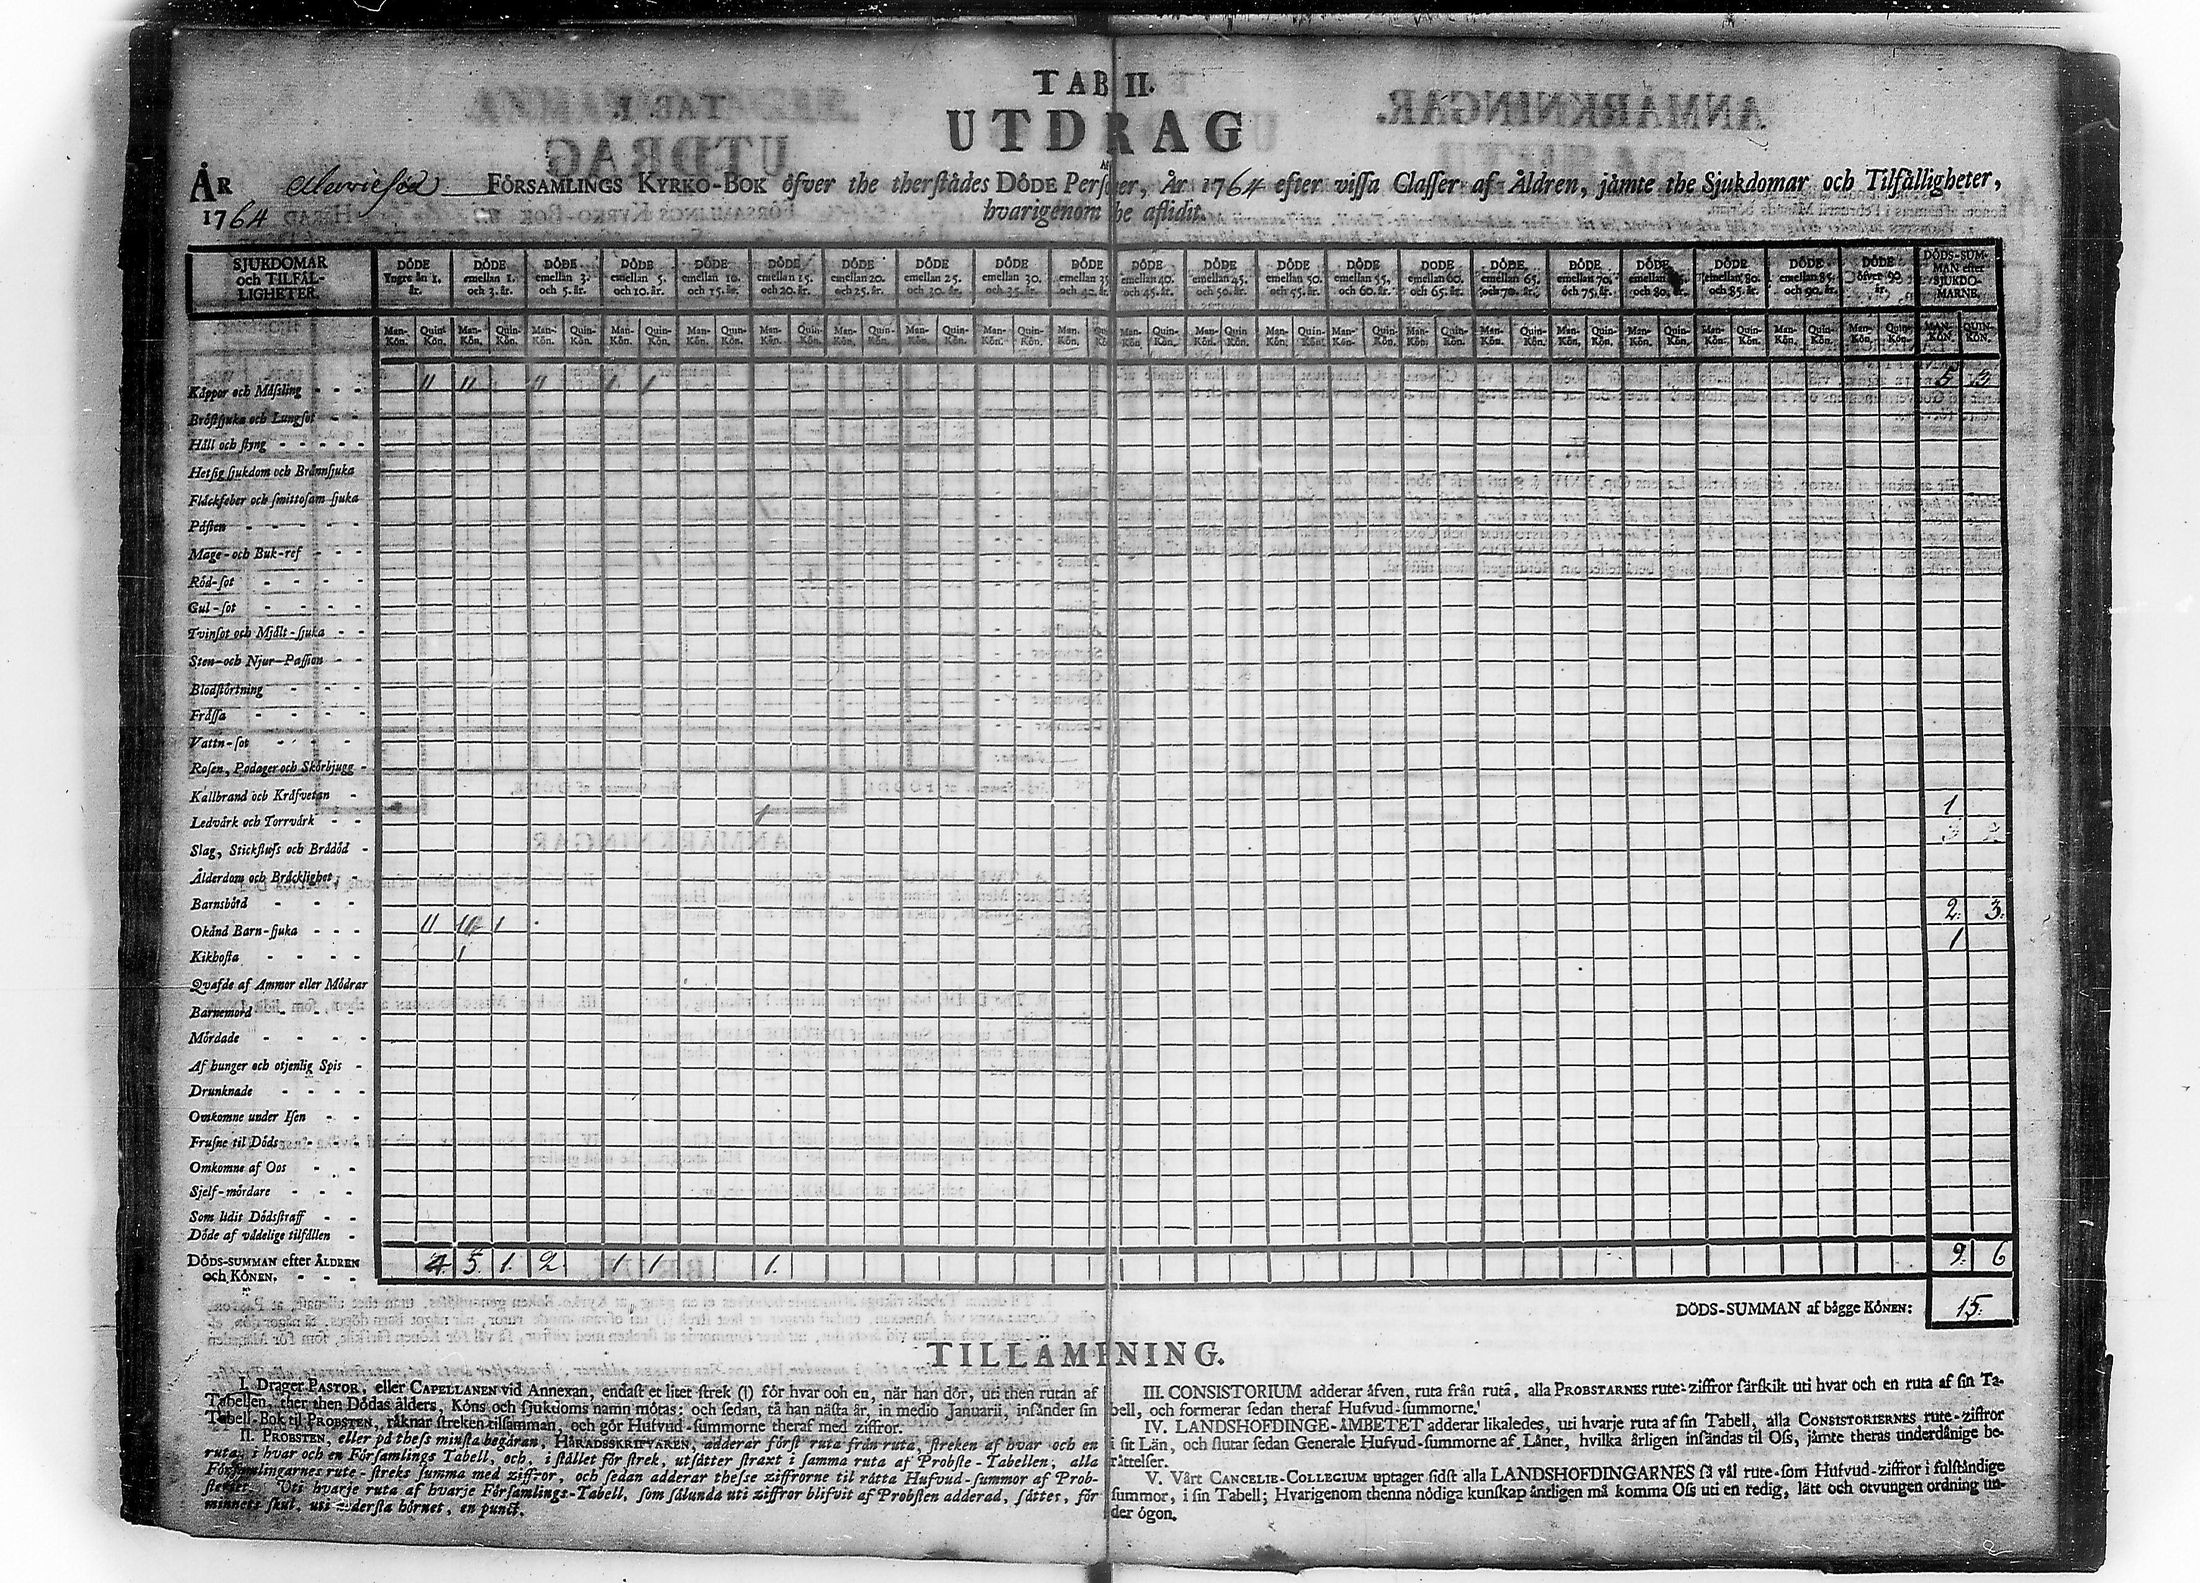 TAB II.
UTDRAG
ÅR 1764
FÖRSAMLINGS KYRKO-BOK öfver the therstädes DÖDE Personer, År 1764 efter vissa Classer af Åldren, jämte the Sjukdomar och Tilfälligheter,
hvarigenom the aflidit.
SJUKDOMAR och TILFÄLLIGHETER.
DÖDE Yngre än 1. år.
DÖDE emellan 1. och 3. år.
DÖDE emellan 3. och 5. år.
DÖDE emellan 5. och 10. år.
DÖDE emellan 10. och 15. år.
DÖDE emellan 15. och 20. år.
DÖDE emellan 20. och 25. år.
DÖDE emellan 25. och 30. år.
DÖDE emellan 30. och 35. år.
DÖDE emellan 35 och 40 år.
DÖDE emellan 40. och 45. år.
DÖDE emellan 45. och 50. år.
DÖDE emellan 50. och 55. år.
DÖDE emellan 55. och 60. år.
DÖDE emellan 60. och 65. år.
DÖDE emellan 65. och 70. år.
DÖDE emellan 70. och 75. år.
DÖDE och 80. år.
DÖDE emellan 80. och 85. år.
DÖDE emellan 85. och 90. år.
DÖDE öfver 90. år.
DÖDS-SUMMAN efter SJUKDOMARNE.
Man-Kön. Quin-Kön. Man-Kön. Quin-Kön. Man-Kön. Quin-Kön. Man-Kön. Quin-Kön. Man-Kön. Quin-Kön. Man-Kön. Quin-Kön. Man-Kön. Quin-Kön. Man-Kön. Quin-Kön. Man-Kön. Quin-Kön. Man-Kön. Man-Kön. Quin-Kön. Man-Kön. Quin-Kön. Man-Kön. Quin-Kön. Man-Kön. Quin-Kön. Man-Kön. Quin-Kön. Man-Kön. Quin-Kön. Man-Kön. Quin-Kön. Man-Kön. Quin-Kön. Man-Kön. Quin-Kön. Man-Kön. Quin-Kön. Man-Kön. Quin-Kön. MAN-KÖN. QUIN-KÖN.
Kåppor och Mässling - - - II II II I I 5 3
Bröstsjuka och Lungsot - -
Håll och styng - - - - -
Hetsig sjukdom och Brännsjuka
Fläckfeber och smittosam sjuka
Påsten - - - - -
Mage-och Buk-ref - - -
Röd-sot - - - -
Gul-sot - - - -
Tvinsot och Mjält-sjuka - -
Sten-och Njur-Passion - -
Blodstörtning - - -
Frässa - - - -
Vattn-sot - - - -
Rosen, Podager och Skörbjugg -
Kallbrand och Kräfvetan -
Ledvärk och Torrvärk - - 1 1
Slag, Stickfluss och Brådöd -
Ålderdom och Bräcklighet -
Barnsbörd - - -
Okänd Barn-sjuka - - - II 1 2. 3.
Kikhosta - - - - 1 1
Qvafde af Ammor eller Mödrar
Barnemord - - - -
Mördade - - - -
Af hunger och otjenlig Spis -
Drunknade - - - -
Omkomne under Isen - -
Frusne til Döds - - -
Omkomne af Oos - -
Sjelf-mördare - - -
Som lidit Dödsstraff - -
Döde af vådelige tilfällen -
DÖDS-SUMMAN efter ÅLDREN 4. 5. 1. 2. 1. 1. 1. 9. 6
och KÖNEN. - - -
DÖDS-SUMMAN af bägge KÖNEN: 15.
TILLÄMPNING.
I. Drager PASTOR, eller CAPELLANEN vid Annexan, endast et litet strek (I) för hvar och en, när han dör, uti then rutan af
Tabellen, ther then Dödas ålders, Köns och sjukdoms namn mötas: och sedan, tå han nästa år, in medio Januarii, insänder sin
Tabell-Bok til PROBSTEN, räknar streken tilsamman, och gör Hufvud-summorne theraf med ziffror.
II. PROBSTEN, eller på thess minsta begäran, HÄRADSSKRIFVAREN, adderar först ruta från ruta, streken af hvar och en
ruta, i hvar och en Församlings Tabell, och, i stället för strek, utsätter straxt i samma ruta af Probste-Tabellen, alla
Församlingarnes rute-streks summa med ziffror, och sedan adderar thesse ziffrorne til rätta Hufvud-summor af Prob-
steriet. Uti hvarje ruta af hvarje Församlings-Tabell, som sålunda uti ziffror blifvit af Probsten adderad, sättes, för
minnets skul, uti nedersta hörnet, en punct.
III. CONSISTORIUM adderar äfven, ruta från ruta, alla PROBSTARNES rute-ziffror särskilt uti hvar och en ruta af sin Ta-
bell, och formerar sedan theraf Hufvud-summorne.
IV. LANDSHOFDINGE-ÄMBETET adderar likaledes, uti hvarje ruta af sin Tabell, alla CONSISTORIERNES rute-ziffror
i sit Län, och slutar sedan Generale Hufvud-summorne af Länet, hvilka årligen insändas til Oss, jämte theras underdånige be-
rättelser.
V. Vårt CANCELIE-COLLEGIUM uptager sidst alla LANDSHOFDINGARNES så väl rute-som Hufvud-ziffror i fulständige
summor, i sin Tabell; Hvarigenom thenna nödiga kunskap äntligen må komma Oss uti en redig, lätt och otvungen ordning un-
der ögon.